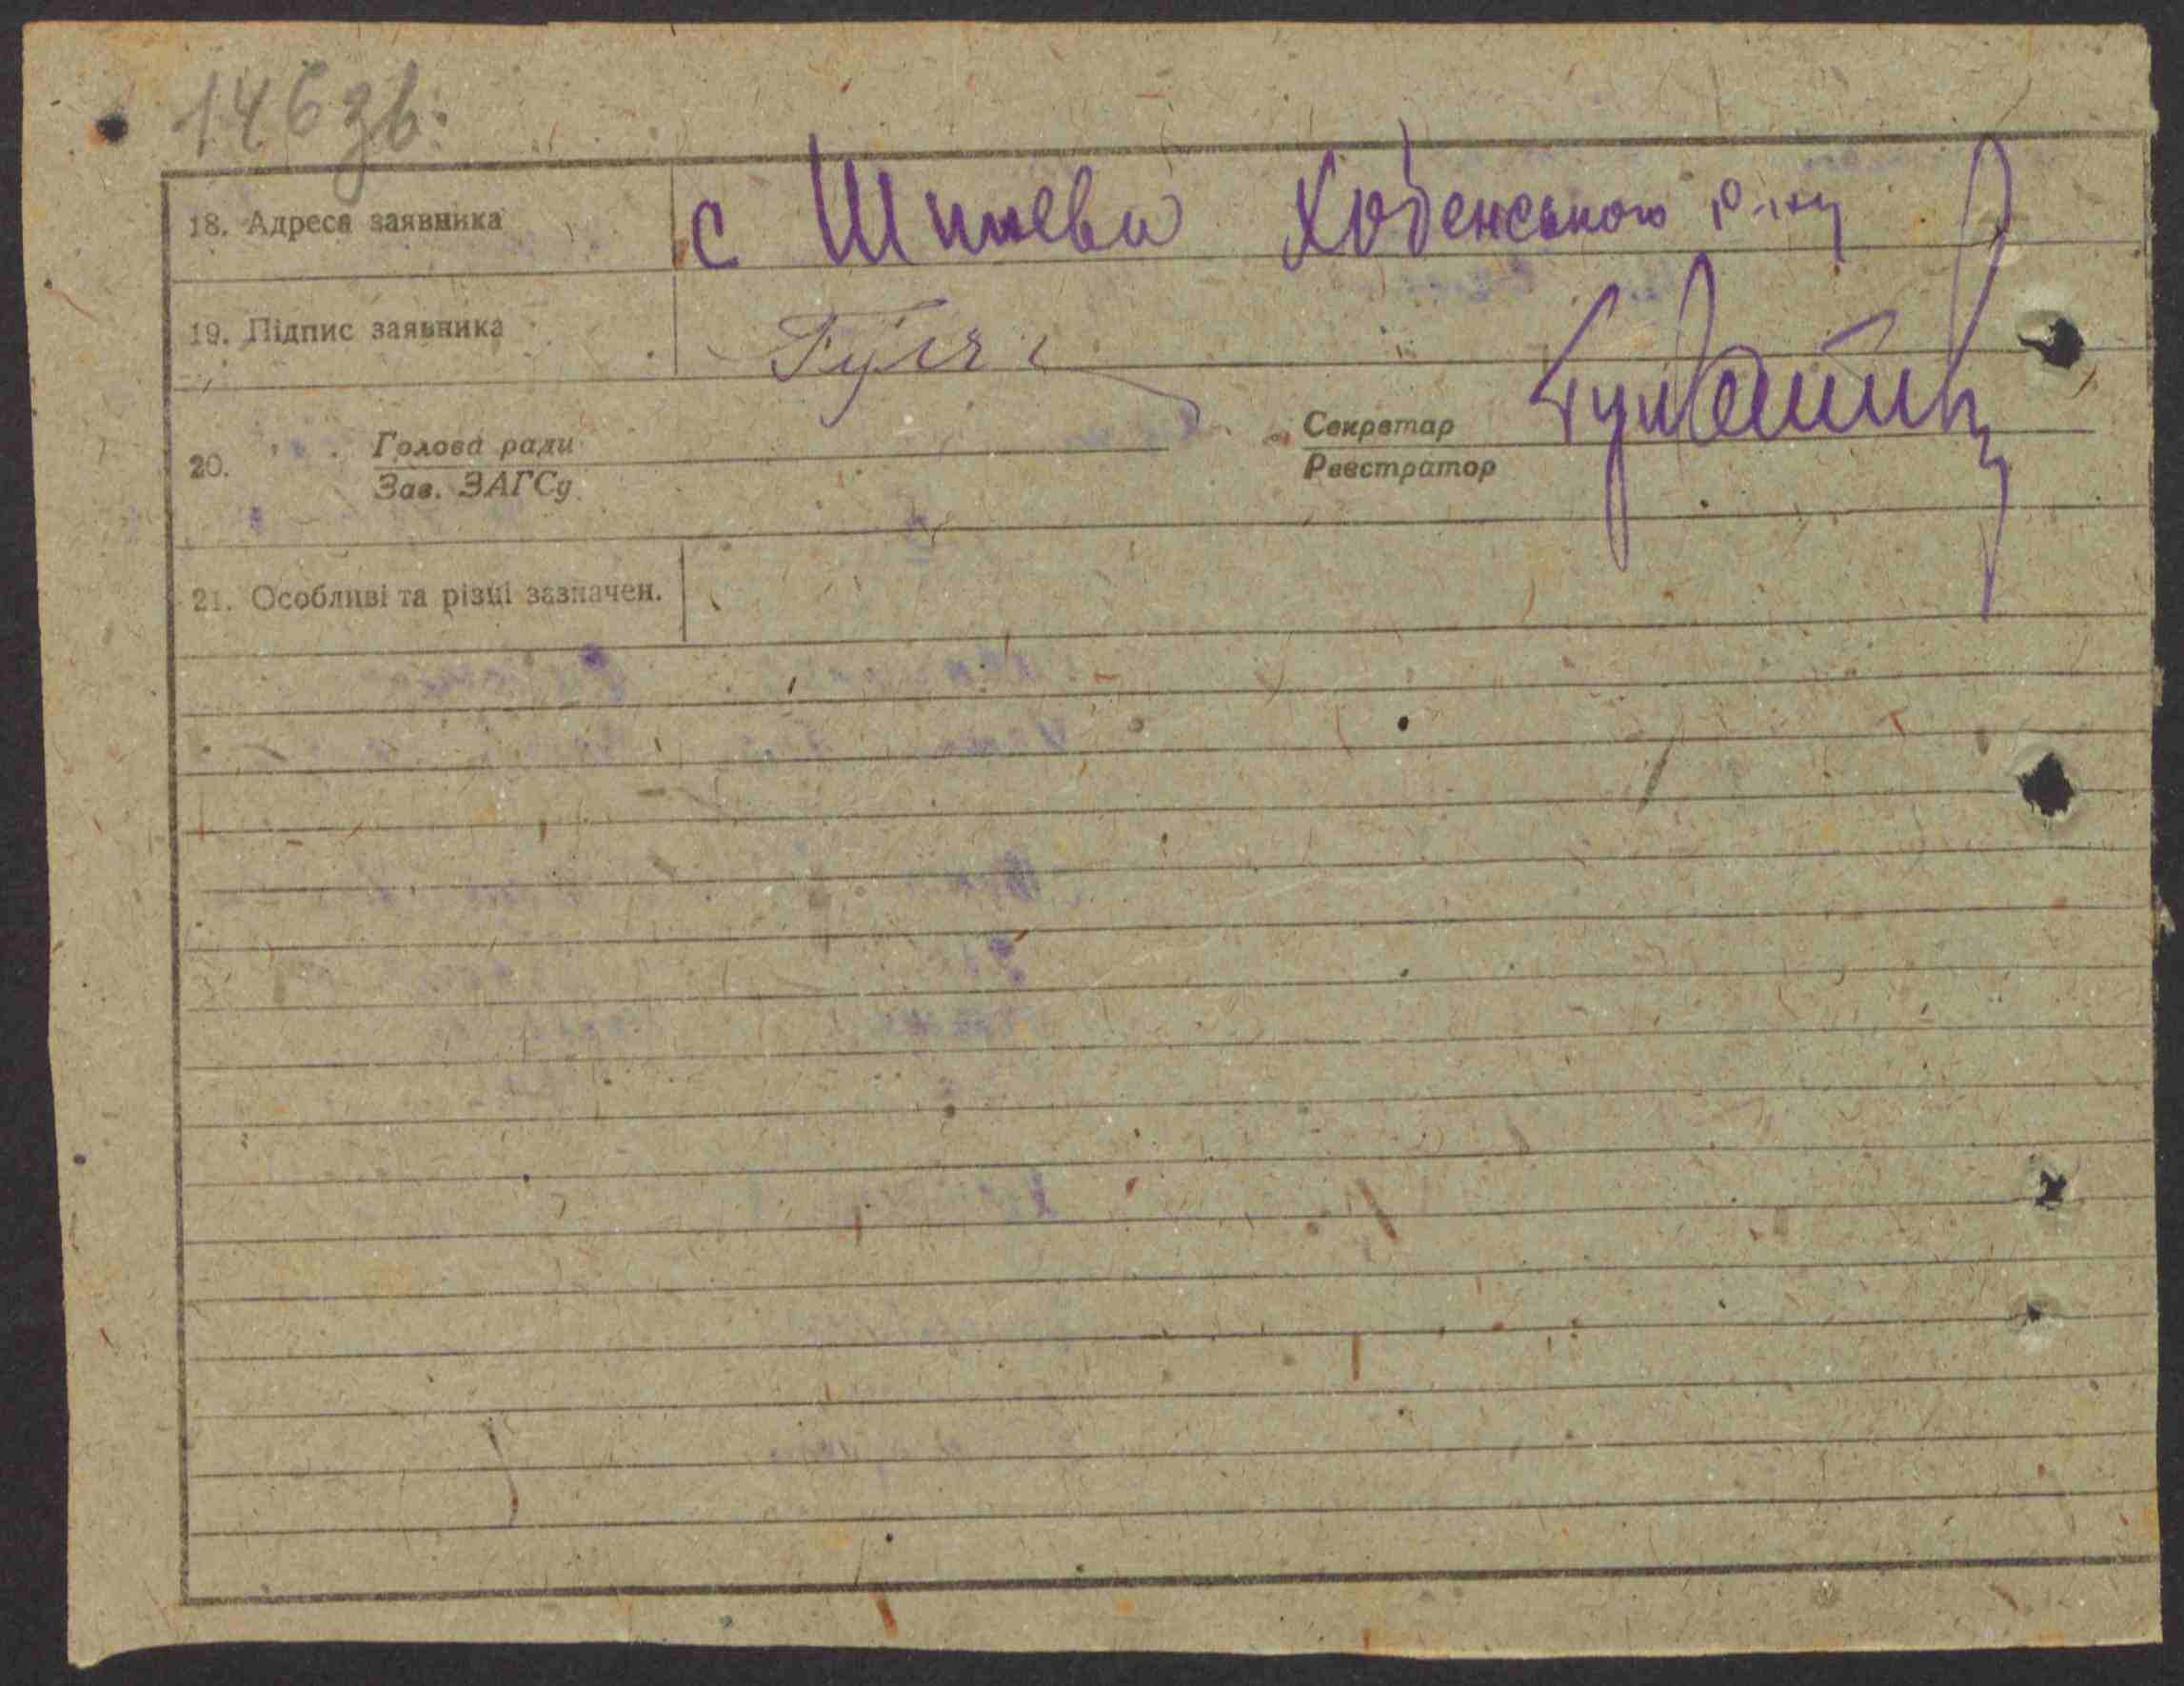 146 зв.
18. Адреса заявника с Шишеви Кобенського р-ну
19. Підпис заявника Гуля
20. Голова ради Секретар
Зав. ЗАГСу Реєстратор
21. Особливі та різні зазначен.